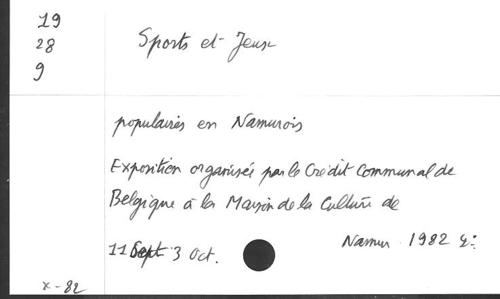 19
28
9
Sports et Jeux
populaires en Namurois
Exposition organisée par le Crédit Communal de
Belgique à la Maison de la Culture de
Namur 1982
11 Sept 3 Oct.
x-82